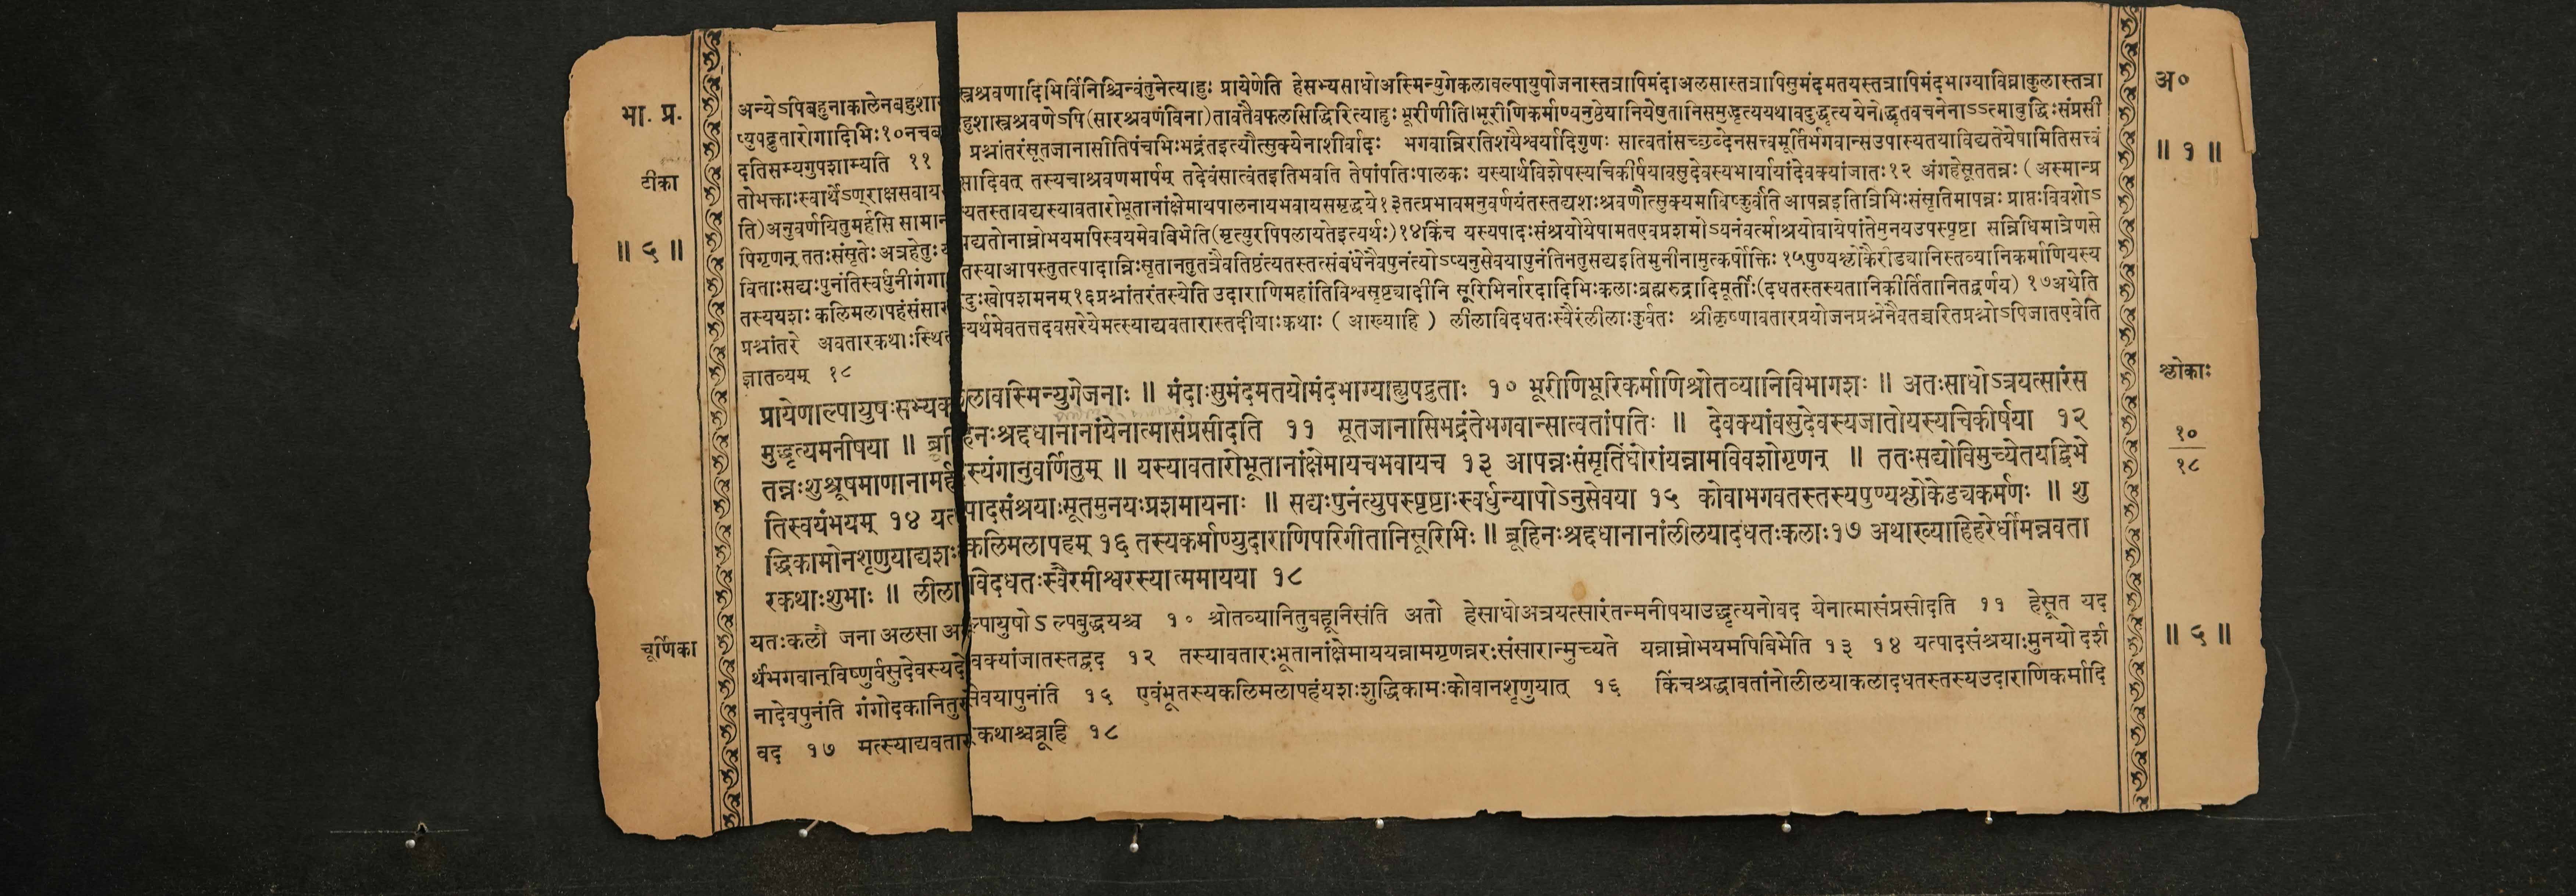 भा. प्र.
टीका
॥ ५ ॥
चूर्णिका
अ०
॥ १ ॥
श्लोकाः
१०
१८
॥ ५ ॥
अन्येऽपिबहुनाकालेनबहुशा स्त्रश्रवणादिभिर्विनिश्चिन्वंतुनेत्याहुः प्रायेणेति हेसभ्यसाधोअस्मिन्युगेकलावल्पायुषोजनास्तत्रापिमंदाअलसास्तत्रापिसुमंदमतयस्तत्रापिमंदभाग्याविघ्नाकुलास्तत्रा
प्युपद्रुतारोगादिभिः१०नचब हुशास्त्रश्रवणेऽपि(सारश्रवणंविना)तावतैवफलसिद्धिरित्याहुः भूरीणीति।भूरीणिकर्माण्यनुष्ठेयानियेषुतानिसमुद्धृत्ययथावदुद्धृत्य येनोद्धृतवचनेनाऽऽत्माबुद्धिःसंप्रसी
दतिसम्यगुपशाम्यति ११ प्रश्नांतरंसूतजानासीतिपंचभिःभद्रंतइत्यौत्सुक्येनाशीर्वादः भगवान्निरतिशयैश्वर्यादिगुणः सात्वतांसच्छब्देनसत्त्वमूर्तिर्भगवान्सउपास्यतयाविद्यतेयेषामितिसत्त्वं
तोभक्ताःस्वार्थेऽण्राक्षसवाय सादिवत् तस्यचाश्रवणमार्षम् तदेवंसात्वंतइतिभवति तेषांपतिःपालकः यस्यार्थविशेषस्यचिकीर्षयावसुदेवस्यभार्यायांदेवक्यांजातः१२ अंगहेसूततन्नः ( अस्मान्प्र
ति)अनुवर्णयितुमर्हसि सामान यतस्तावद्यस्यावतारोभूतानांक्षेमायपालनायभवायसमृद्धये१३तत्प्रभावमनुवर्णयंतस्तद्यशःश्रवणौत्सुक्यमाविष्कुर्वंति आपन्नइतित्रिभिःसंसृतिमापन्नः प्राप्तःविवशोऽ
पिगृणन् ततःसंसृतेः अत्रहेतुः यद्यतोनाम्नोभयमपिस्वयमेवबिभेति(मृत्युरपिपलायतेइत्यर्थः)१४किंच यस्यपादःसंश्रयोयेषामतएवप्रशमोऽयनंवर्त्माश्रयोवायेषांतेमुनयउपस्पृष्टा सन्निधिमात्रेणसे
विताःसद्यःपुनंतिस्वर्धुनीगंगा तस्याआपस्तुतत्पादान्निःसृतानतुतत्रैवतिष्ठंत्यतस्तत्संबंधेनैवपुनंत्योऽप्यनुसेवयापुनंतिनतुसद्यइतिमुनीनामुत्कर्षोक्तिः १५पुण्यश्लोकैरीड्यानिस्तव्यानिकर्माणियस्य
तस्ययशः कलिमलापहंसंसार दुःखोपशमनम्१६प्रश्नांतरंतस्येति उदाराणिमहांतिविश्वसृष्ट्यादीनि सूरिभिर्नारदादिभिःकलाःब्रह्मरुद्रादिमूर्तीः(दधतस्तस्यतानिकीर्तितानितद्वर्णय) १७अथेति
प्रश्नांतरे अवतारकथाःस्थित्यर्थमेवतत्तदवसरेयेमत्स्याद्यवतारास्तदीयाःकथाः ( आख्याहि ) लीलाविदधतःस्वैरंलीलाःकुर्वतः श्रीकृष्णावतारप्रयोजनप्रश्नेनैवतच्चरितप्रश्नोऽपिजातएवेति
ज्ञातव्यम् १८
प्रायेणाल्पायुषःसभ्यक लावस्मिन्युगेजनाः ॥ मंदाःसुमंदमतयोमंदभाग्याह्युपद्रुताः १० भूरीणिभूरिकर्माणिश्रोतव्यानिविभागशः ॥ अतःसाधोऽत्रयत्सारंस
मुद्धृत्यमनीषया ॥ ब्रूहिनःश्रद्दधानानांयेनात्मासंप्रसीदति ११ सूतजानासिभद्रंतेभगवान्सात्वतांपतिः ॥ देवक्यांवसुदेवस्यजातोयस्यचिकीर्षया १२
तन्नःशुश्रूषमाणानामर्हस्यंगानुवर्णितुम् ॥ यस्यावतारोभूतानांक्षेमायचभवायच १३ आपन्नःसंसृतिंघोरांयन्नामविवशोगृणन् ॥ ततःसद्योविमुच्येतयद्बिभे
तिस्वयंभयम् १४ यत्पादसंश्रयाःसूतमुनयःप्रशमायनाः ॥ सद्यःपुनंत्युपस्पृष्टाःस्वर्धुन्यापोऽनुसेवया १५ कोवाभगवतस्तस्यपुण्यश्लोकेड्यकर्मणः ॥ शु
द्धिकामोनशृणुयाद्यशःकलिमलापहम् १६ तस्यकर्माण्युदाराणिपरिगीतानिसूरिभिः ॥ ब्रूहिनःश्रद्दधानानांलीलयादधतःकलाः१७ अथाख्याहिहरेर्धीमन्नवता
रकथाःशुभाः ॥ लीलाविदधतःस्वैरमीश्वरस्यात्ममायया १८
यतःकलौ जना अलसा अल्पायुषोऽ ल्पबुद्धयश्च १० श्रोतव्यानितुबहूनिसंति अतो हेसाधोअत्रयत्सारंतन्मनीषयाउद्धृत्यनोवद येनात्मासंप्रसीदति ११ हेसूत यद
र्थंभगवान्विष्णुर्वसुदेवस्यदेवक्यांजातस्तद्वद १२ तस्यावतारःभूतानांक्षेमाययन्नामगृणन्नरःसंसारान्मुच्यते यन्नाम्नोभयमपिबिभेति १३ १४ यत्पादसंश्रयाःमुनयो दर्श
नादेवपुनंति गंगोदकानितुसेवयापुनंति १५ एवंभूतस्यकलिमलापहंयशःशुद्धिकामःकोवानशृणुयात् १६ किंचश्रद्धावतांनोलीलयाकलादधतस्तस्यउदाराणिकर्मादि
वद १७ मत्स्याद्यवतारकथाश्चब्रूहि १८